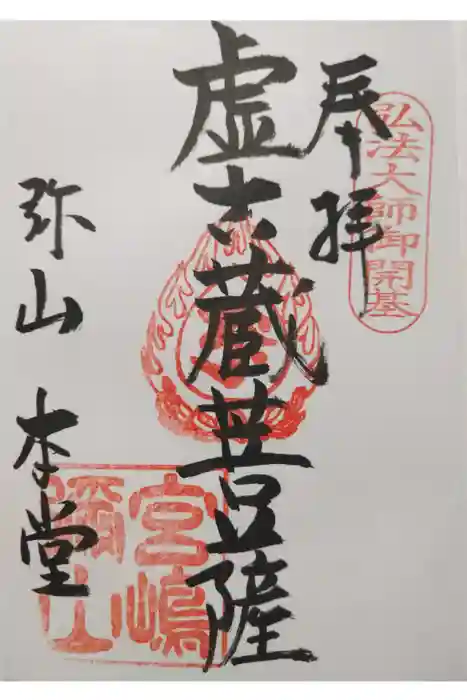 弘法大師御開基
奉拝
虚空蔵菩薩
弥山 本堂
宮嶋
彌山